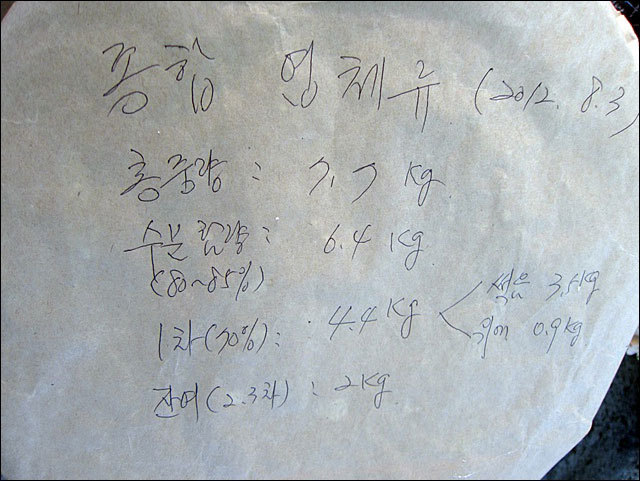 종합 엽체류 (2012. 8. 3)
총중량 : 7.7 kg
수분함량 : 6.4 kg
(80~85%)
1차(70%) : 4.4 kg < 설은 3.5kg
위에 0.9kg
잔여(2.3차) : 2kg